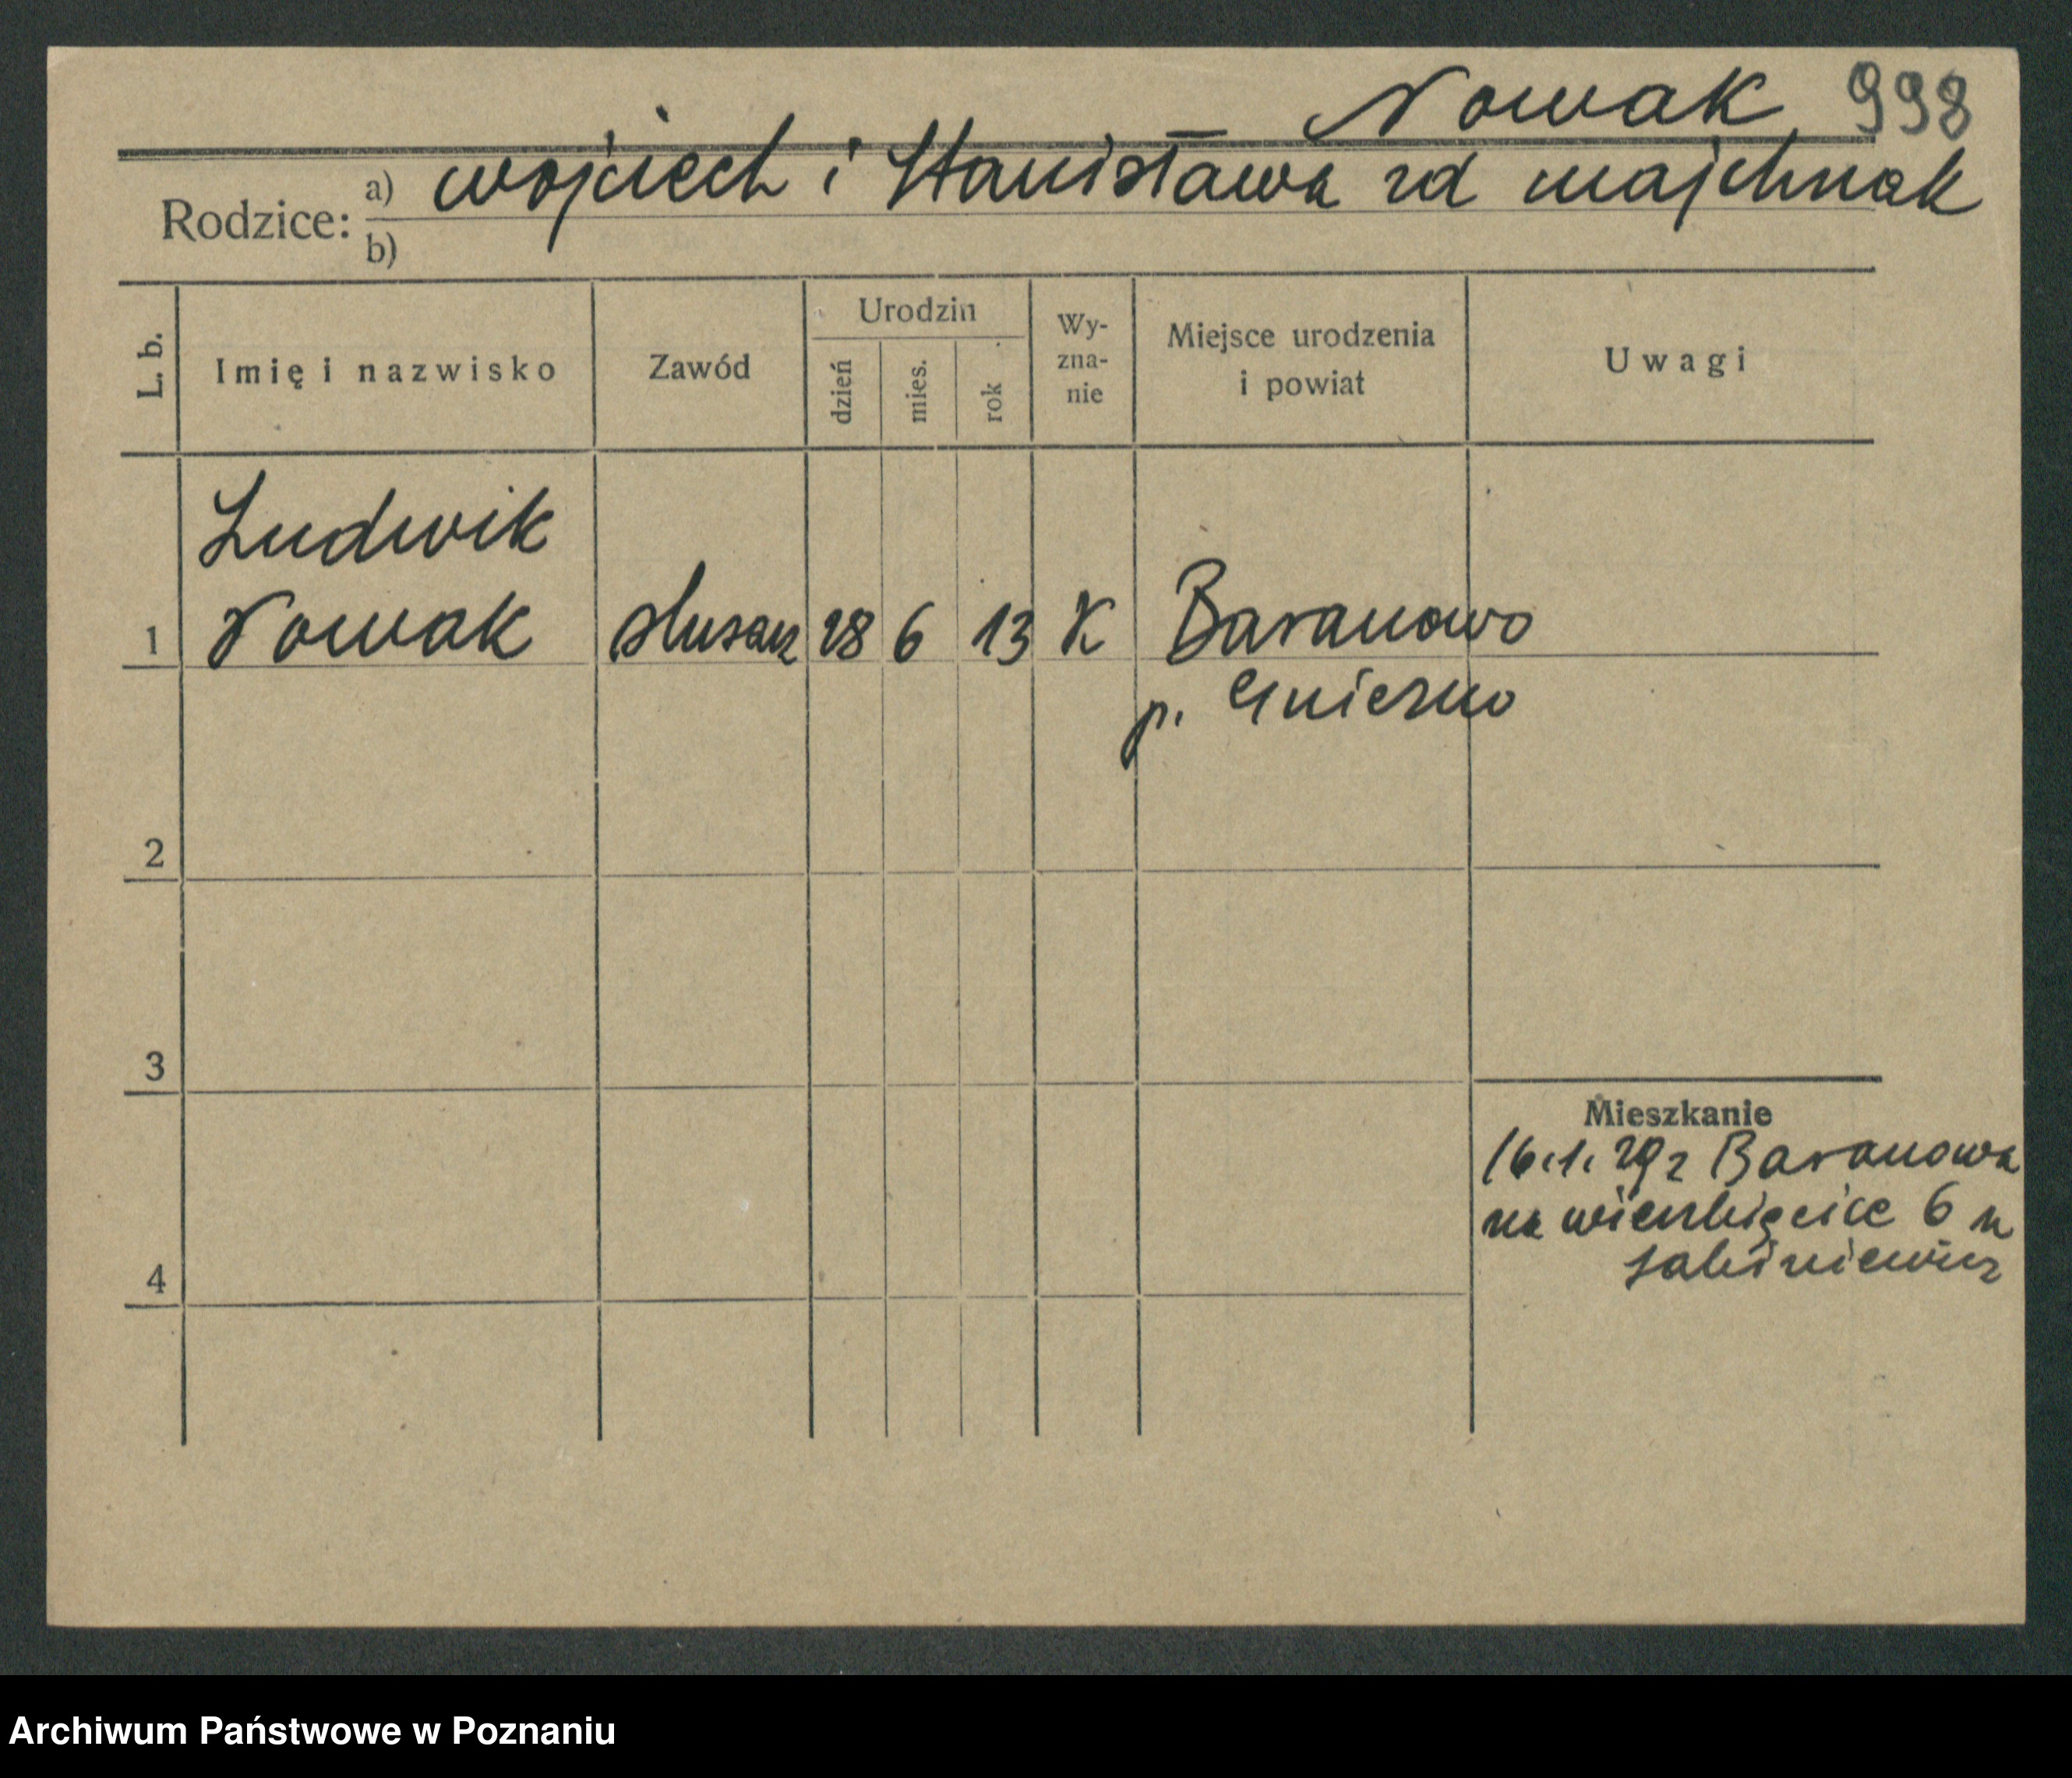 Nowak 998
Rodzice: a) Wojciech i Stanisława zd Majchrzak
b)
L. b. Imię i nazwisko Zawód Urodzin dzień mies. rok Wy-zna-nie Miejsce urodzenia i powiat Uwagi
Ludwik
1 Nowak ślusarz 28 6 13 K Baranowo
p. Gniezno
2
3
Mieszkanie
16.1.29 z Baranowa
na Wierzbięcice 6 u
4
Archiwum Państwowe w Poznaniu